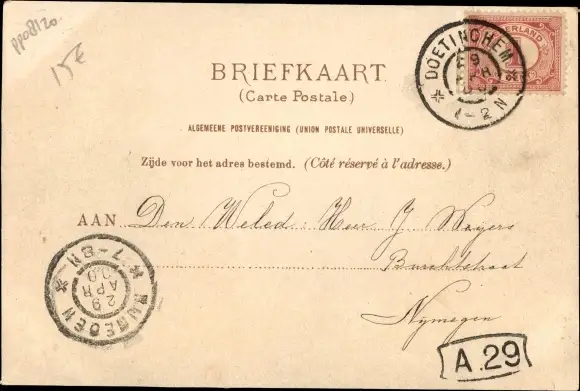 pp08120
15€
NEDERLAND
DOETINCHEM
29
APR
1-2N
BRIEFKAART
(Carte Postale.)
ALGEMEENE POSTVEREENIGING (UNION POSTALE UNIVERSELLE)
Zijde voor het adres bestemd. (Côté réservé à l'adresse.)
AAN Den Weled. Heer J Weijers
Burchtstraat
Nijmegen
NIJMEGEN
29
APR
00
7-8N
A.29